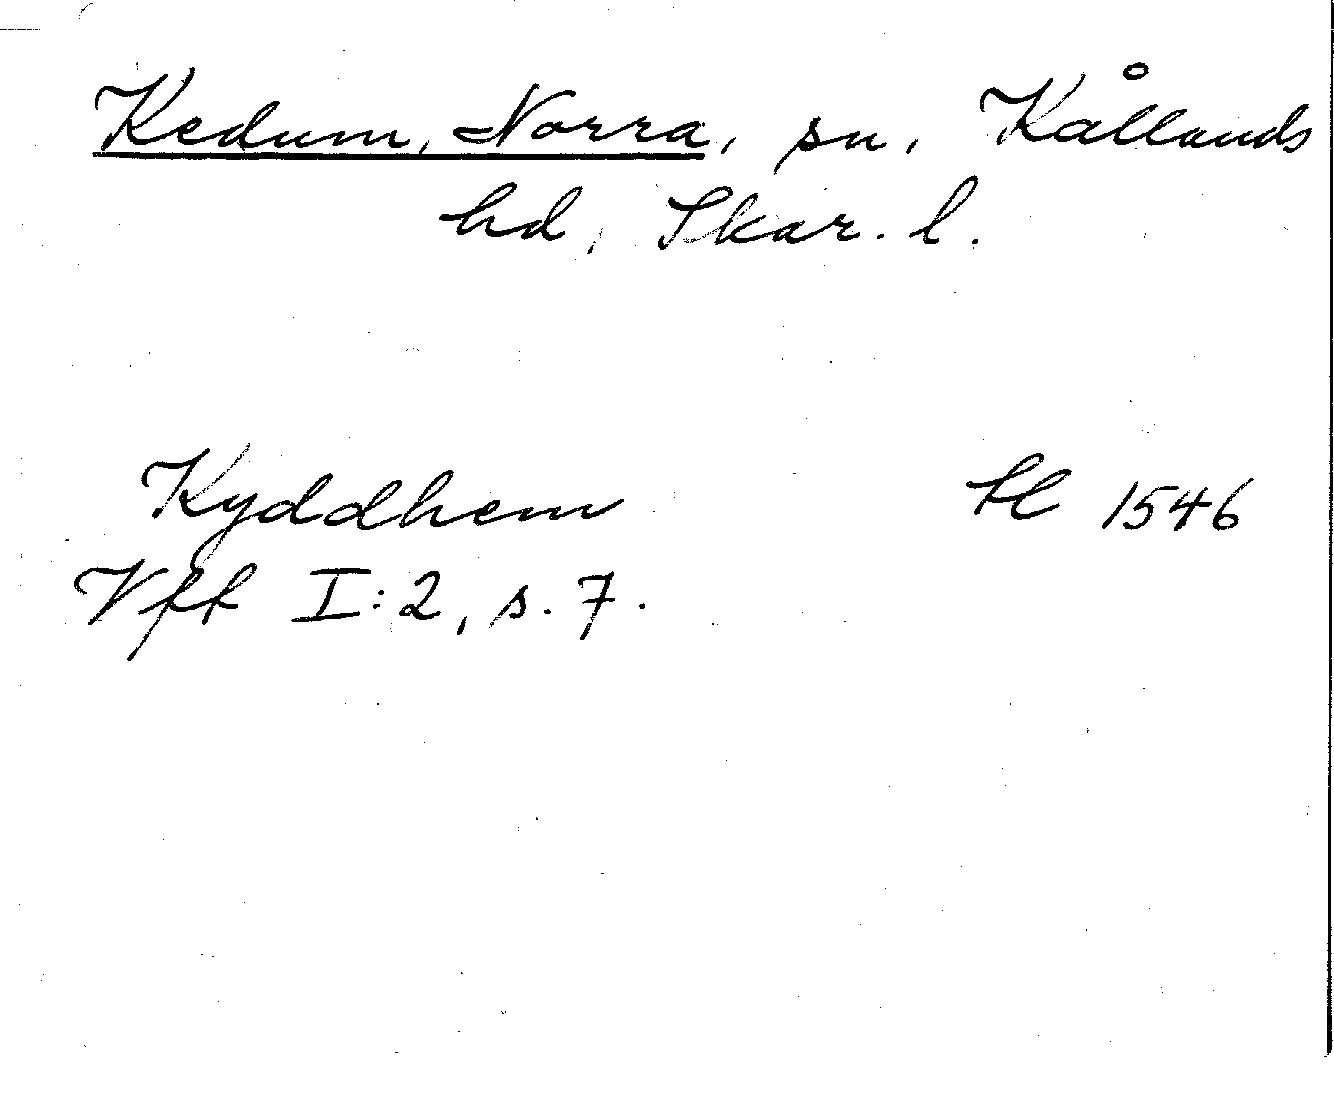 Kedum, Norra, sn, Kållands
hd, Skar. l.
Kyddhem 1546
Vff I:2, s. 7.